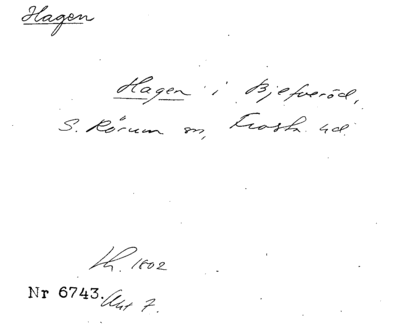 Hagen
Hagen i Bjefveröd,
S. Rörum sn, Frosta hd.
Lh. 1802
Nr 6743. Akt 7.